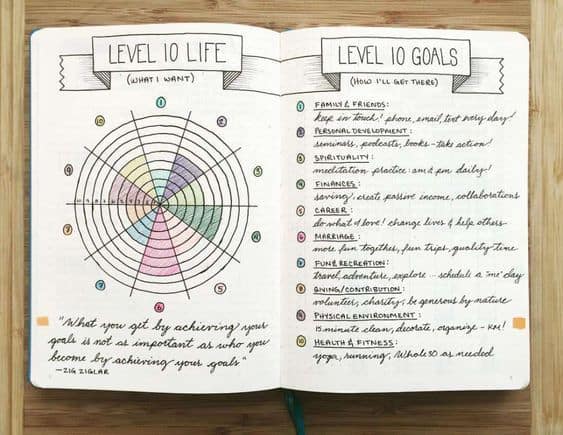 LEVEL 10 LIFE
(WHAT I WANT)
1
2
3
4
5
6
7
8
9
10
"What you get by achieving your
goals is not as important as who you
become by achieving your goals"
—ZIG ZIGLAR
LEVEL 10 GOALS
(HOW I'LL GET THERE)
1 FAMILY & FRIENDS:
keep in touch! phone, email, text every day!
2 PERSONAL DEVELOPMENT:
seminars, podcasts, books - take action!
3 SPIRITUALITY:
meditation practice: am & pm daily!
4 FINANCES:
saving, create passive income, collaborations
5 CAREER:
do what I love! change lives & help others
6 MARRIAGE:
more fun together, fun trips, quality time
7 FUN & RECREATION:
travel, adventure, explore -- schedule a "me" day
8 GIVING/CONTRIBUTION:
volunteer, charity, be generous by nature
9 PHYSICAL ENVIRONMENT:
15 minute clean, decorate, organize - KM!
10 HEALTH & FITNESS:
yoga, running, Whole30 as needed